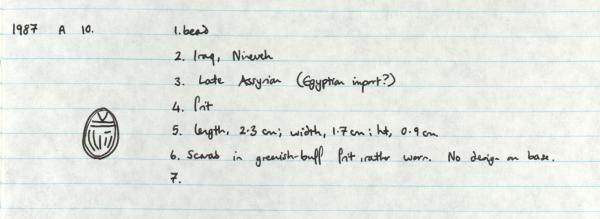 1987 A 10. 1. bead
2. Iraq, Nineveh
3. Late Assyrian (Egyptian import?)
4. frit
5. length, 2.3 cm; width, 1.7 cm; ht, 0.9 cm
6. Scarab in greenish-buff frit, rather worn. No design on base.
7.